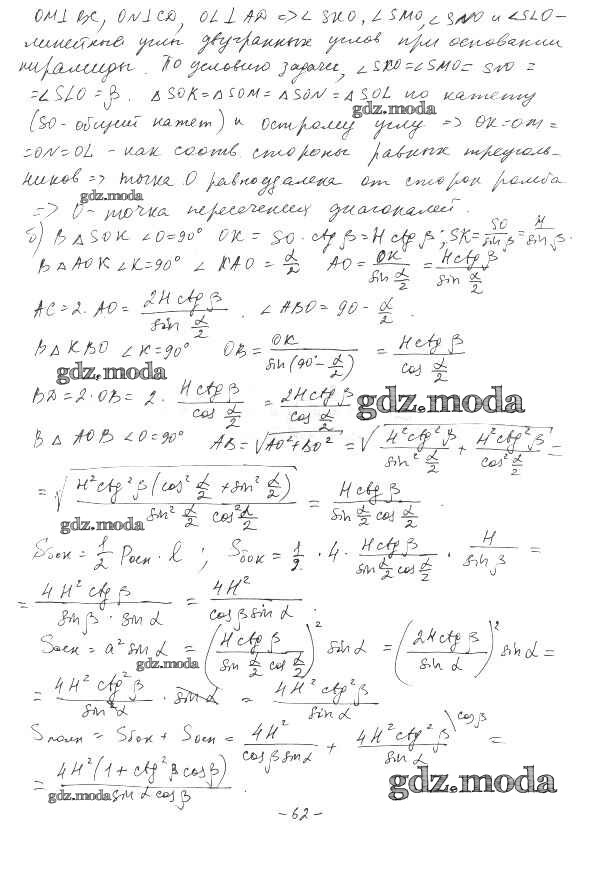 OM⊥BC, ON⊥CD, OL⊥AD => ∠SKO, ∠SMO, ∠SNO и ∠SLO-
линейные углы двугранных углов при основании
пирамиды. По условию задачи, ∠SKO=∠SMO= SNO =
=∠SLO=β. △SOK=△SOM=△SON=△SOL по катету
gdz.moda
(SO-общий катет) и острому углу => OK=OM=
=ON=OL - как соотв. стороны равных треуголь-
ников => точка O равноудалена от сторон ромба
gdz.moda
=> O-точка пересечения диагоналей.
б) В △SOK ∠O=90° OK = SO·ctgβ=Hctgβ; SK= SO/sinβ = H/sinβ.
В △AOK ∠K=90° ∠KAO = α/2 AO= OK/sin α/2 = Hctgβ/sin α/2
AC=2·AO= 2Hctgβ/sin α/2. ∠ABO=90- α/2.
В △KBO ∠K=90° OB= OK/sin(90°- α/2) = Hctgβ/cos α/2
gdz.moda
BD=2·OB= 2· Hctgβ/cos α/2 = 2Hctgβ/cos α/2
gdz.moda
В △AOB ∠O=90° AB=√(AO²+BO²) = √(H²ctg²β/sin² α/2 + H²ctg²β/cos² α/2) =
= √(H²ctg²β(cos² α/2 + sin² α/2)/sin² α/2 cos² α/2) = Hctgβ/sin α/2 cos α/2.
gdz.moda
Sбок= 1/2 Pосн·l; Sбок= 1/2 ·4· Hctgβ/sin α/2 cos α/2 · H/sinβ =
= 4H²ctgβ/sinβ·sinα = 4H²/cosβsinα.
Sосн = a²sinα = (Hctgβ/sin α/2 cos α/2)² sinα = (2Hctgβ/sinα)² sinα =
gdz.moda
= 4H²ctg²β/sin²α · sinα = 4H²ctg²β/sinα
Sполн = Sбок + Sосн = 4H²/cosβsinα + 4H²ctg²β/sinα \cosβ =
= 4H²(1+ctg²βcosβ)/sinαcosβ.
gdz.moda
gdz.moda
-62-